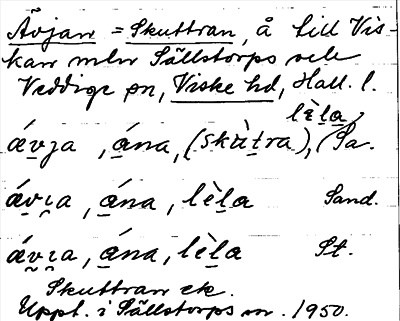 Ävjan = Skuttran, å till Vis-
kan mln Sällstorps och
Veddige sn, Viske hd, Hall. l.
lὲla,
ávja, ána, (skùtra), Sa.
ávɩa, ána, lὲla Sand.
ávɩa, ána, lὲla St.
Skuttran ek.
Uppt. i Sällstorps sn. 1950.